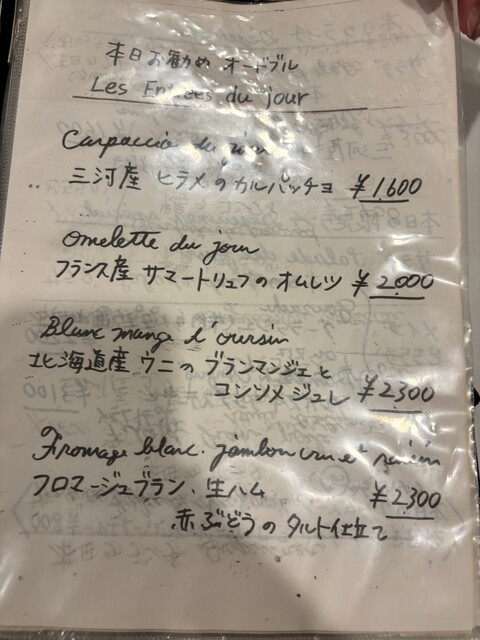 本日お勧め オードブル
Les Entrées du jour
Carpaccio du jour
三河産 ヒラメのカルパッチョ ¥1,600
Omelette du jour
フランス産 サマートリュフのオムレツ ¥2,000
Blanc mange d'oursin
北海道産 ウニの ブランマンジェと
コンソメジュレ ¥2,300
Fromage blanc. jambon cru et raisin
フロマージュブラン、生ハム ¥2300
赤ぶどうのタルト仕立て